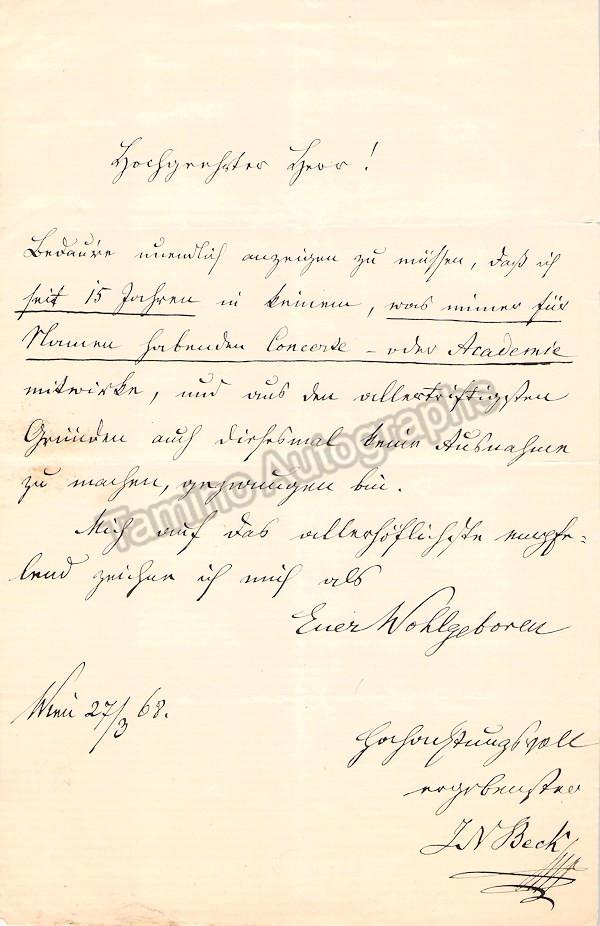 Hochgeehrter Herr!
Bedaure unendlich anzeigen zu müssen, daß ich
seit 15 Jahren in keinem, was immer für
Namen habenden Concerte – oder Academie
mitwirke, und aus den allertriftigsten
Gründen auch diesesmal keine Ausnahme
zu machen, gezwungen bin.
Mich auf das allerhöflichste empfe=
lend zeichne ich mich als
Euer Wohlgeboren
Wien 27/3 68.
hochachtungsvoll
ergebenster
J N Beck
Tamino Autographs